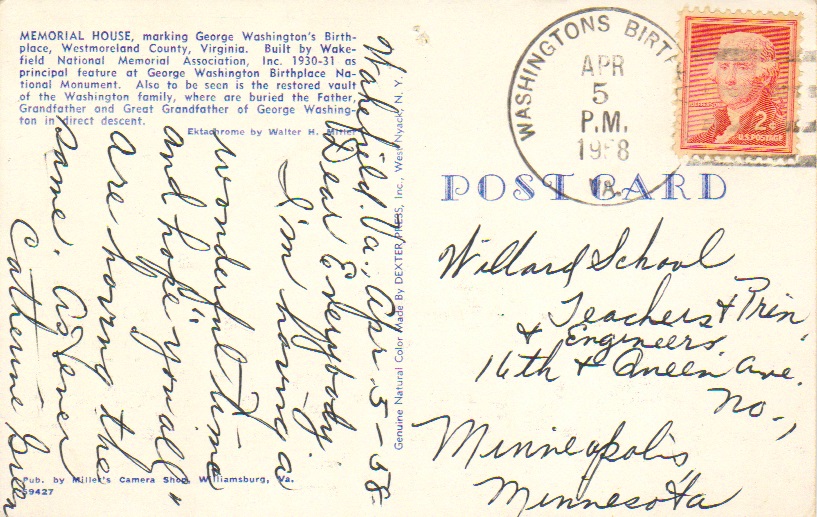 MEMORIAL HOUSE, marking George Washington's Birth-
place, Westmoreland County, Virginia. Built by Wake-
field National Memorial Association, Inc. 1930-31 as
principal feature at George Washington Birthplace Na-
tional Monument. Also to be seen is the restored vault
of the Washington family, where are buried the Father,
Grandfather and Great Grandfather of George Washing-
ton in direct descent.
Ektachrome by Walter H. Miller
Wakefield. Va., Apr. 5-58
Dear Everybody,
I'm having a
wonderful time
and hope "you all"
are having the
same. As ever
Catherine Green
Pub. by Miller's Camera Shop, Williamsburg, Va.
59427
Genuine Natural Color Made By DEXTER PRESS, Inc., West Nyack, N. Y.
WASHINGTONS BIRT
APR
5
P.M.
1958
VA.
2¢
U.S. POSTAGE
POST CARD
Willard School
Teachers & Prin.
& Engineers.
16th & Queen Ave.
No.,
Minneapolis,
Minnesota